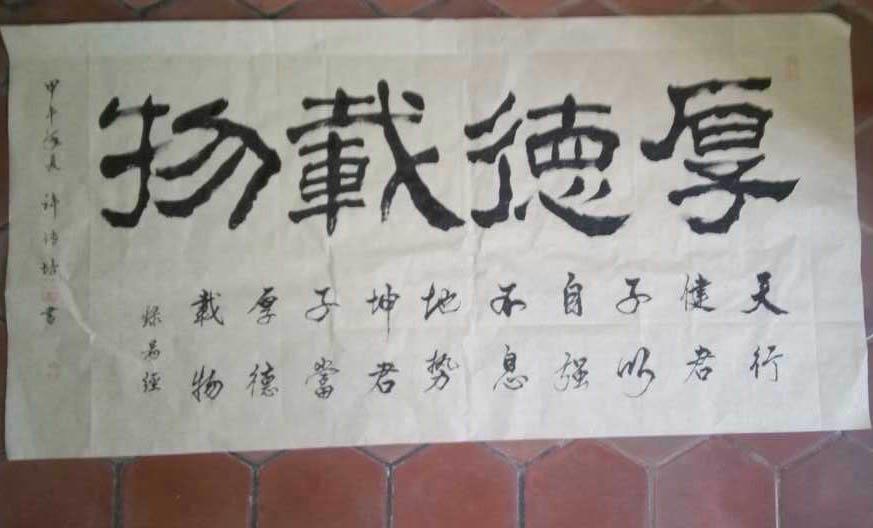 厚德載物
天行
健君
子以
自强
不息
地势
坤君
子當
厚德
載物
錄易經
甲午 夏 許 培 書